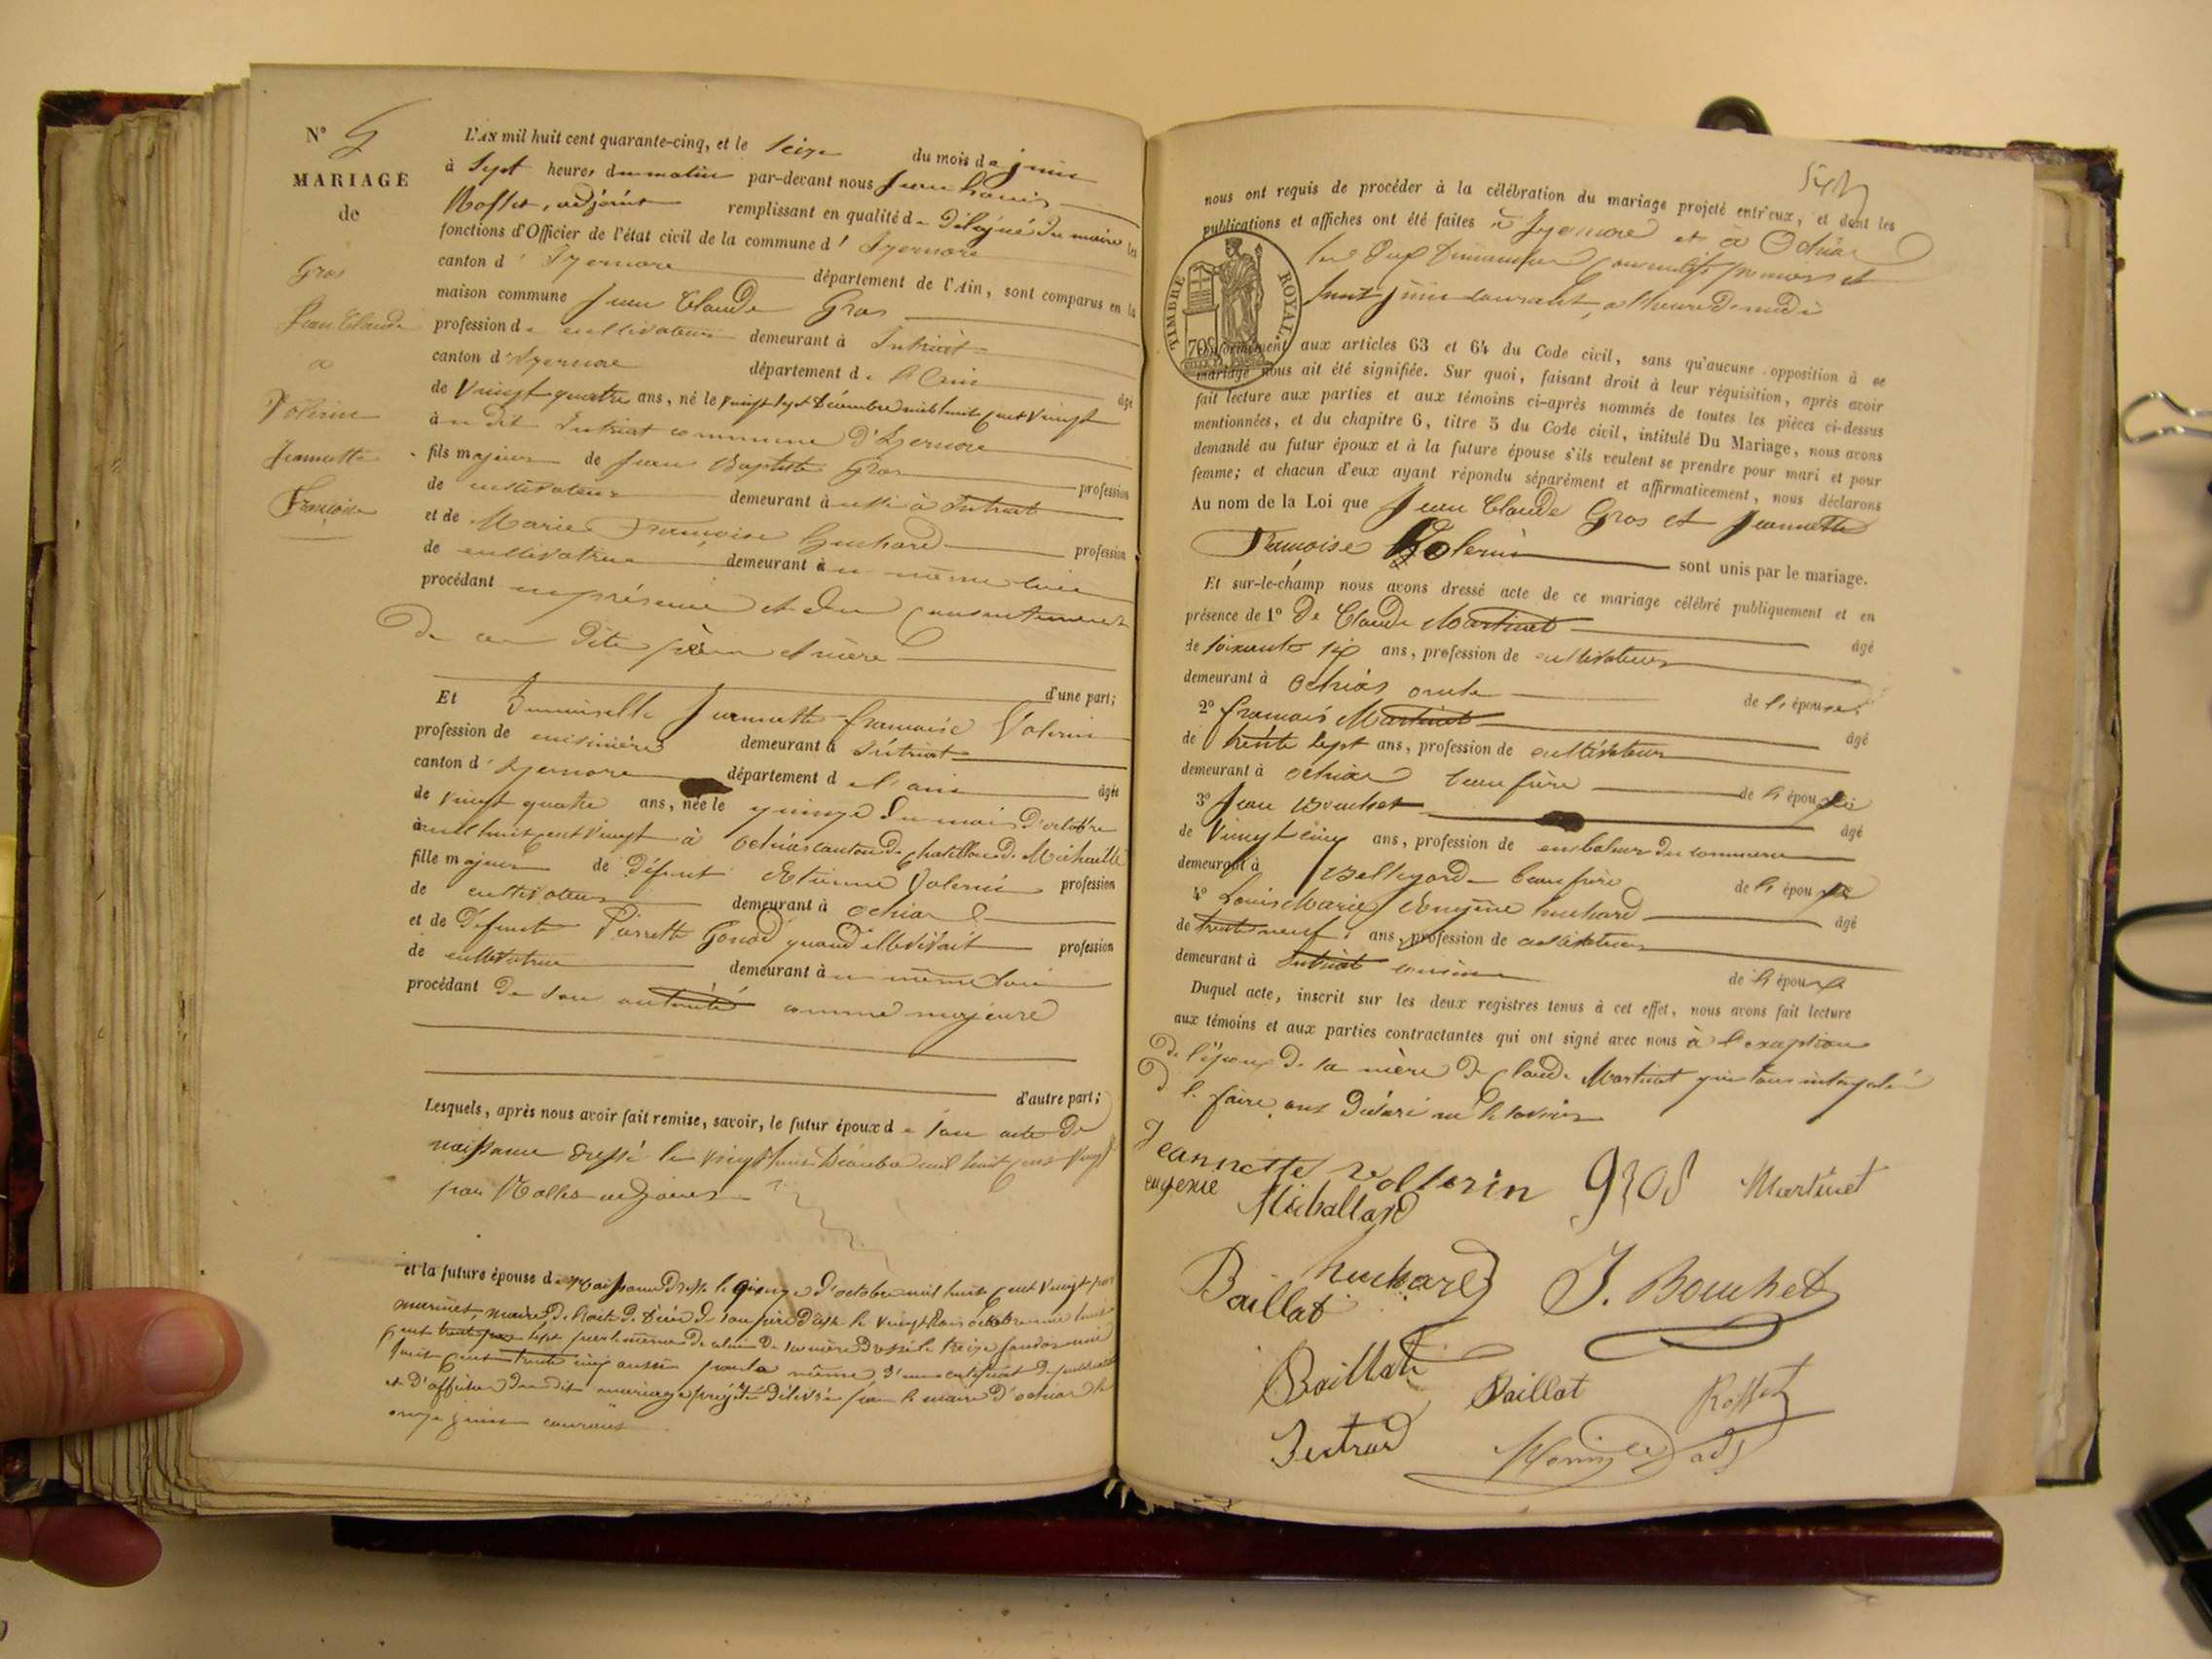 N° 5
MARIAGE
de
Gros
Jean Claude
a
Volerin
Jeannette
Françoise
L'AN mil huit cent quarante-cinq, et le seize du mois de juin
à sept heures du matin par-devant nous Jean Louis
Rosset, adjoint remplissant en qualité de Délégué du maire les
fonctions d'Officier de l'état civil de la commune d' Izernore
canton d' Izernore département de l'Ain, sont comparus en la
maison commune Jean Claude Gros
profession de cultivateur demeurant à Intriat
canton d'Izernore département de l'Ain âgé
de vingt quatre ans, né le vingt sept Décembre mil huit cent vingt
à u dit Intriat commune d'Izernore
fils majeur de Jean Baptiste Gros profession
de cultivateur demeurant aussi à Intriat
et de Marie Françoise huchard profession
de cultivatrice demeurant au même lieu
procédant en présence et du consentement
de ces dits père et mère
d'une part;
Et Demoiselle Jeannette françoise Volerin
profession de cuisinière demeurant à Intriat
canton d'Izernore département de l'ain âgée
de vingt quatre ans, née le quinze du mois d'octobre
mil huit cent vingt à ochias canton de chatillon de Michaille
fille majeure de Défunt Etienne Volerin profession
de cultivateur demeurant à ochias
et de Défunte Pierrette Gonod quand elle vivait profession
de cultivatrice demeurant au même lieu
procédant de son autorité comme majeure
d'autre part;
Lesquels, après nous avoir fait remise, savoir, le futur époux de son acte de
naissance dressé le vingt huit Décembre mil huit cent vingt
par adjoint
et la future épouse de naissance dressé le quinze d'octobre mil huit cent vingt par
maire, de l'acte de Décès de son père dressé le vingt octobre mil huit
cent sept par le même de celui de sa mère dressé le treize mil
huit cent trente cinq aussi par le même, d'un certificat de publication
et d'affiches du dit mariage projeté délivré par le maire d'ochias le
onze juin courant
nous ont requis de procéder à la célébration du mariage projeté entr'eux, et dont les
publications et affiches ont été faites à Izernore et à Ochias
les Deux Dimanches consécutifs premier et
huit juin courant, à l'heure de midi
TIMBRE ROYAL.
70
conformément aux articles 63 et 64 du Code civil, sans qu'aucune opposition à ce
mariage nous ait été signifiée. Sur quoi, faisant droit à leur réquisition, après avoir
fait lecture aux parties et aux témoins ci-après nommés de toutes les pièces ci-dessus
mentionnées, et du chapitre 6, titre 5 du Code civil, intitulé Du Mariage, nous avons
demandé au futur époux et à la future épouse s'ils veulent se prendre pour mari et pour
femme; et chacun d'eux ayant répondu séparément et affirmativement, nous déclarons
Au nom de la Loi que Jean Claude Gros et Jeannette
Françoise Volerin sont unis par le mariage.
Et sur-le-champ nous avons dressé acte de ce mariage célébré publiquement et en
présence de 1° De Claude Martinet âgé
de soixante six ans, profession de cultivateur
demeurant à Ochias oncle de l'épouse;
2° françois Martinet âgé
de trente sept ans, profession de cultivateur
demeurant à ochias beau frère de l'épouse
3° Jean Bouchet âgé
de vingt cinq ans, profession de emballeur du commerce
demeurant à Bellegarde beau frère de l'épouse
4° Louis Marie Eugène huchard âgé
de trente neuf ans, profession de cultivateur
demeurant à Intriat cousin de l'époux
Duquel acte, inscrit sur les deux registres tenus à cet effet, nous avons fait lecture
aux témoins et aux parties contractantes qui ont signé avec nous à l'exception
de l'époux de la mère de Claude Martinet qui tous interpelés
de le faire ont déclaré ne le savoir
Jeannette vollerin gros Martinet
eugenie Michallard
Baillat huchard J. Bouchet
Baillat Baillat Rosset